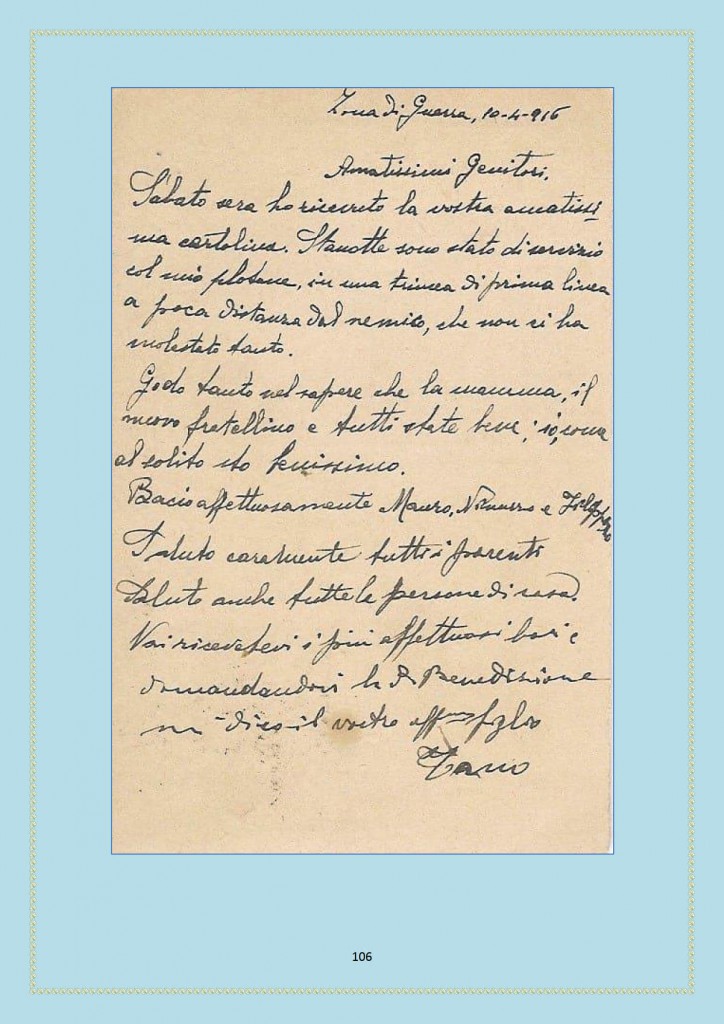 Zona di Guerra, 10-4-916
Amatissimi Genitori,
Sabato sera ho ricevuto la vostra amatissi
ma cartolina. Stanotte sono stato di servizio
col mio plotone, in una trincea di prima linea
a poca distanza dal nemico, che non ci ha
molestato tanto.
Godo tanto nel sapere che la mamma, il
nuovo fratellino e tutti state bene; io, come
al solito sto benissimo.
Bacio affettuosamente Mauro, e
Saluto caramente tutti i parenti
Saluto anche tutte le persone di casa.
Voi ricevetevi i più affettuosi baci e
domandandovi la S. Benedizione
mi dico il vostro aff.mo figlio
Tano
106